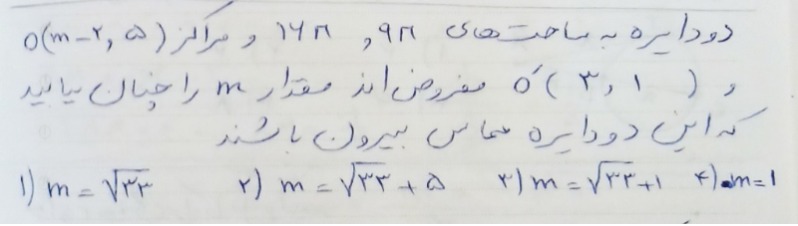 دو دایره به مساحت‌های ۹π و ۱۶π و مراکز O(m-۲, ۵)
و O'(۳, ۱) مفروض‌اند مقدار m را چنان بیابید
که این دو دایره مماس بیرون باشند
۱) m = √۳۳ ۲) m = √۳۳ + ۵ ۳) m = √۳۳+۱ ۴) m=۱